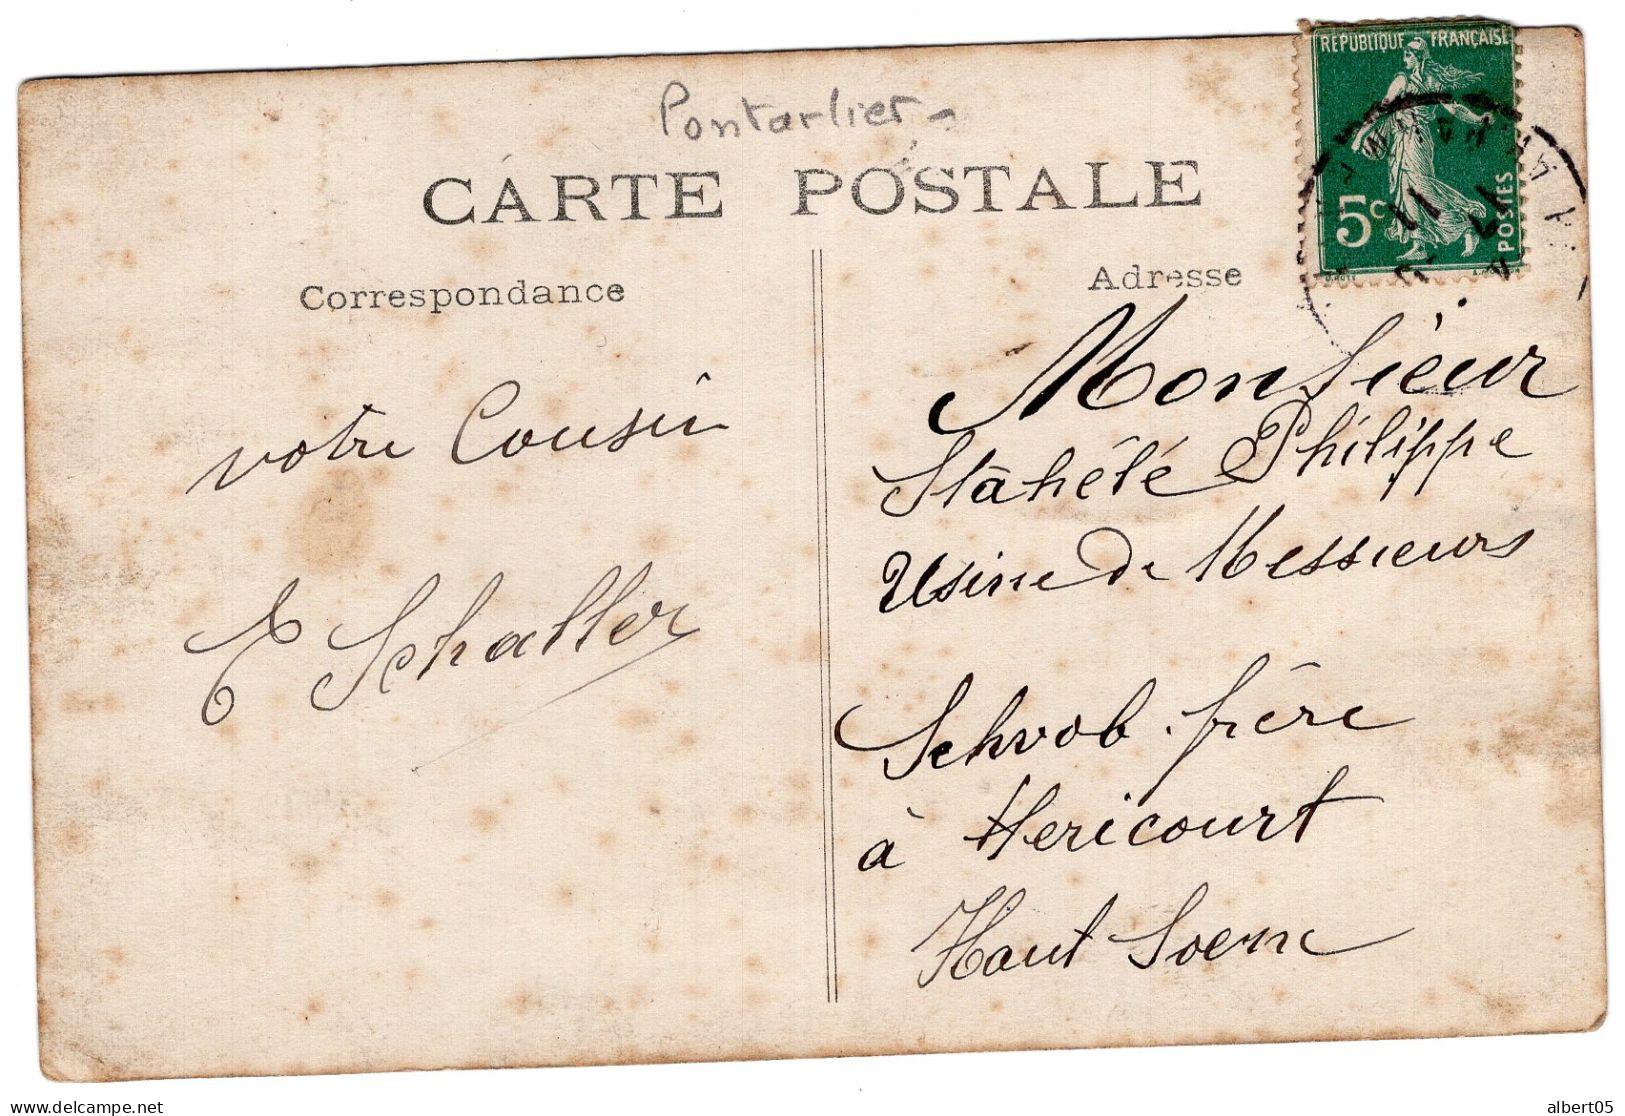 Pontarlier -
CARTE POSTALE
RÉPUBLIQUE FRANÇAISE
5c
POSTES
Correspondance
Adresse
votre Cousin
E Schaller
Monsieur
Stähélé Philippe
Usine de Messieurs
Schvob frére
à Hericourt
Haut Soene
delcampe.net
albert05